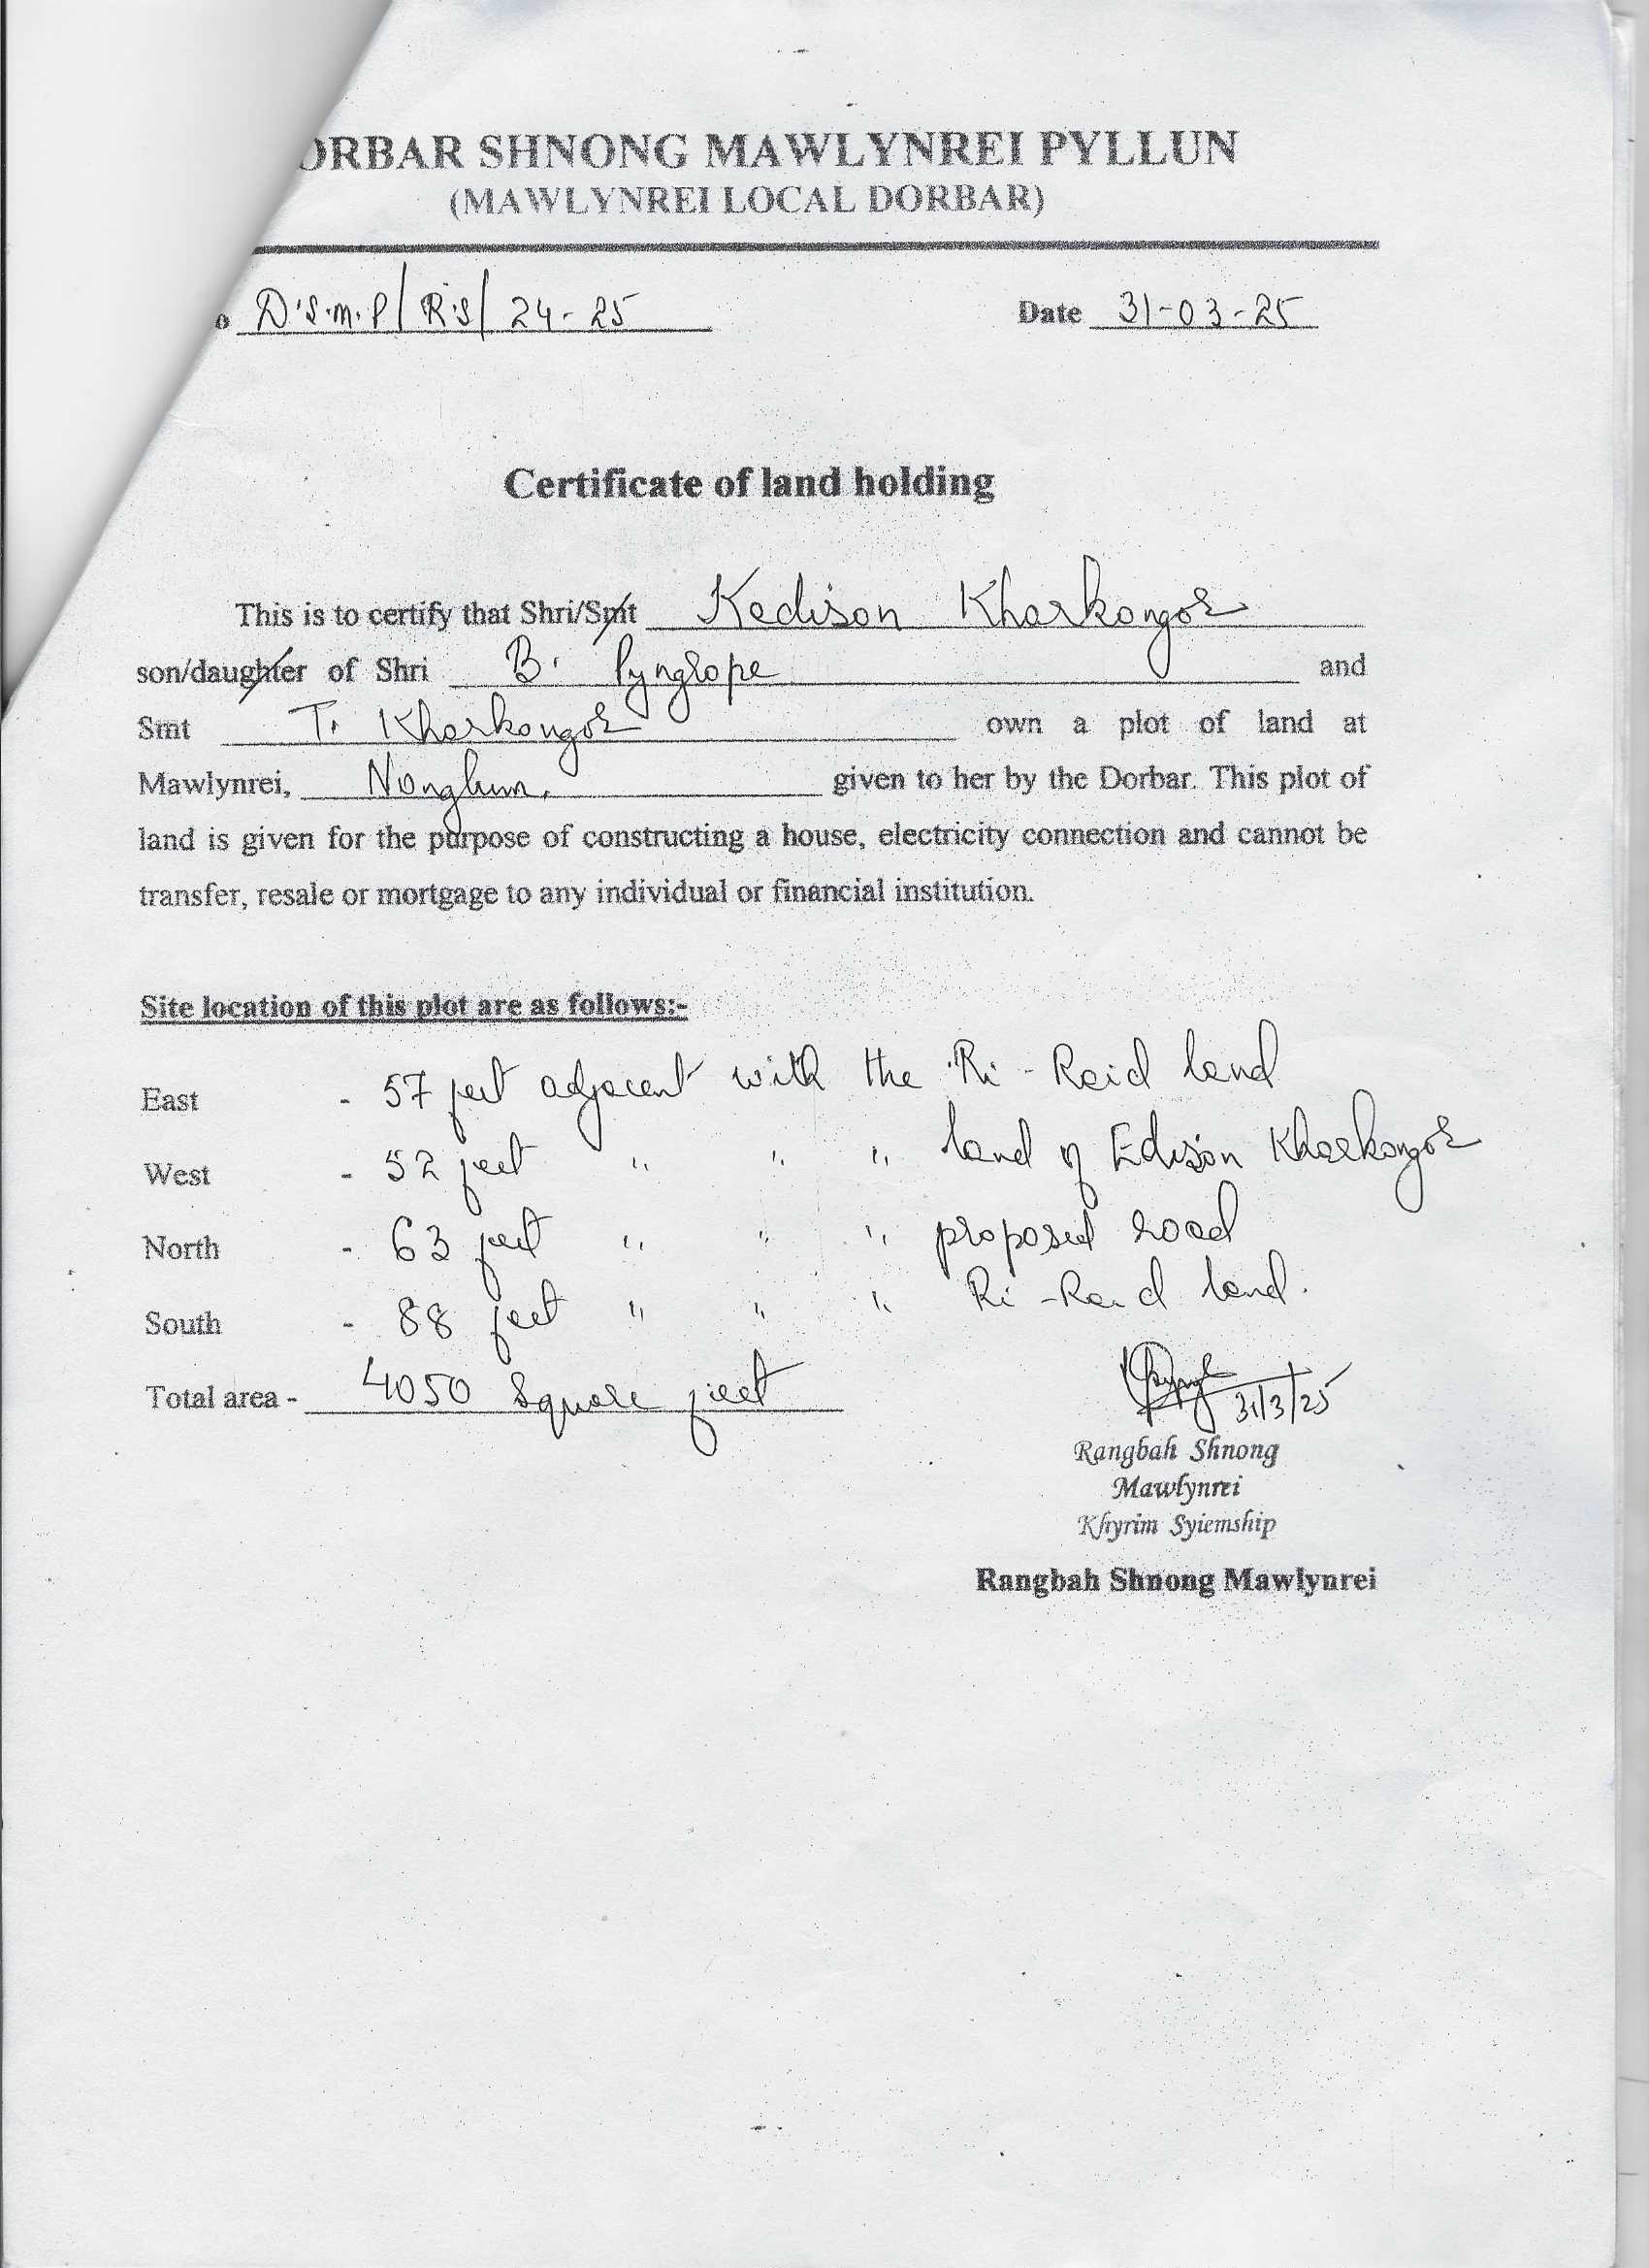 ORBAR SHNONG MAWLYNREI PYLLUN
(MAWLYNREI LOCAL DORBAR)
o D.S.M.P/R.S/24-25 Date 31-03-25
Certificate of land holding
This is to certify that Shri/Smt Kedison Kharkongor
son/daughter of Shri B. Pyngrope and
Smt T. Kharkongor own a plot of land at
Mawlynrei, Nonglum. given to her by the Dorbar. This plot of
land is given for the purpose of constructing a house, electricity connection and cannot be
transfer, resale or mortgage to any individual or financial institution.
Site location of this plot are as follows:-
East - 57 feet adjacent with the Ri-Raid land
West - 52 feet " " " land of Edison Kharkongor
North - 63 feet " " " proposed road
South - 88 feet " " " Ri-Raid land.
Total area - 4050 Square feet
31/3/25
Rangbah Shnong
Mawlynrei
Khyrim Syiemship
Rangbah Shnong Mawlynrei